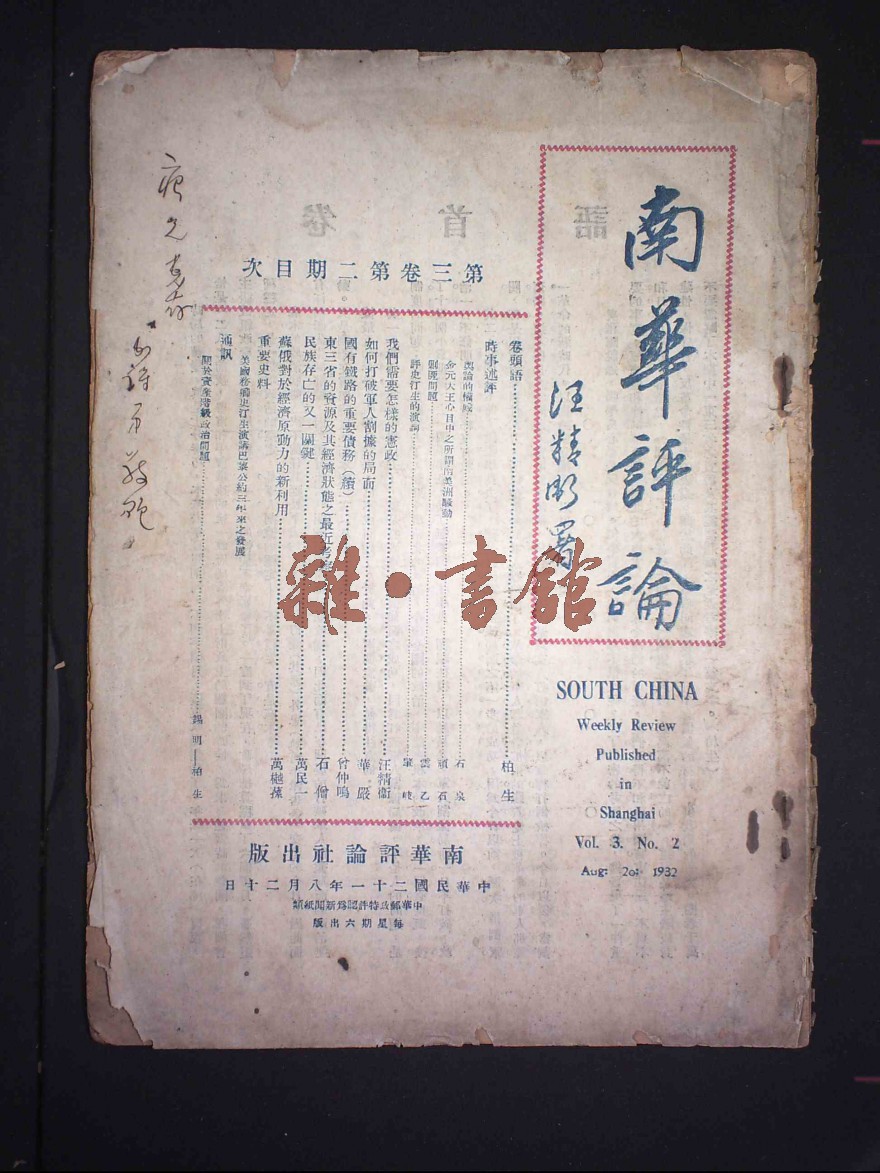 南華評論
汪精衛署
SOUTH CHINA
Weekly Review
Published
in
Shanghai
Vol. 3. No. 2
Aug: 20: 1932
第三卷第二期目次
卷頭語 柏生
時事述評
輿論的權威 石泉
金元大王心目中之所謂南美洲騷動 頑石
剿匪問題 雲乙
評史汀生的演詞
我們需要怎樣的憲政 汪精衛
如何打破軍人割據的局面 華嚴
國有鐵路的重要債務(續) 曾仲鳴
東三省的資源及其經濟狀態之最近考察 石僧
民族存亡的又一關鍵 萬民一
蘇俄對於經濟原動力的新利用 萬樾蓀
重要史料
美國務卿史汀生演講巴黎公約三年來之發展
通訊
關於資產階級政治問題 錫明—柏生
南華評論社出版
中華民國二十一年八月二十日
中華郵政特許認爲新聞紙類
每星期六出版
雜·書館
卷首語